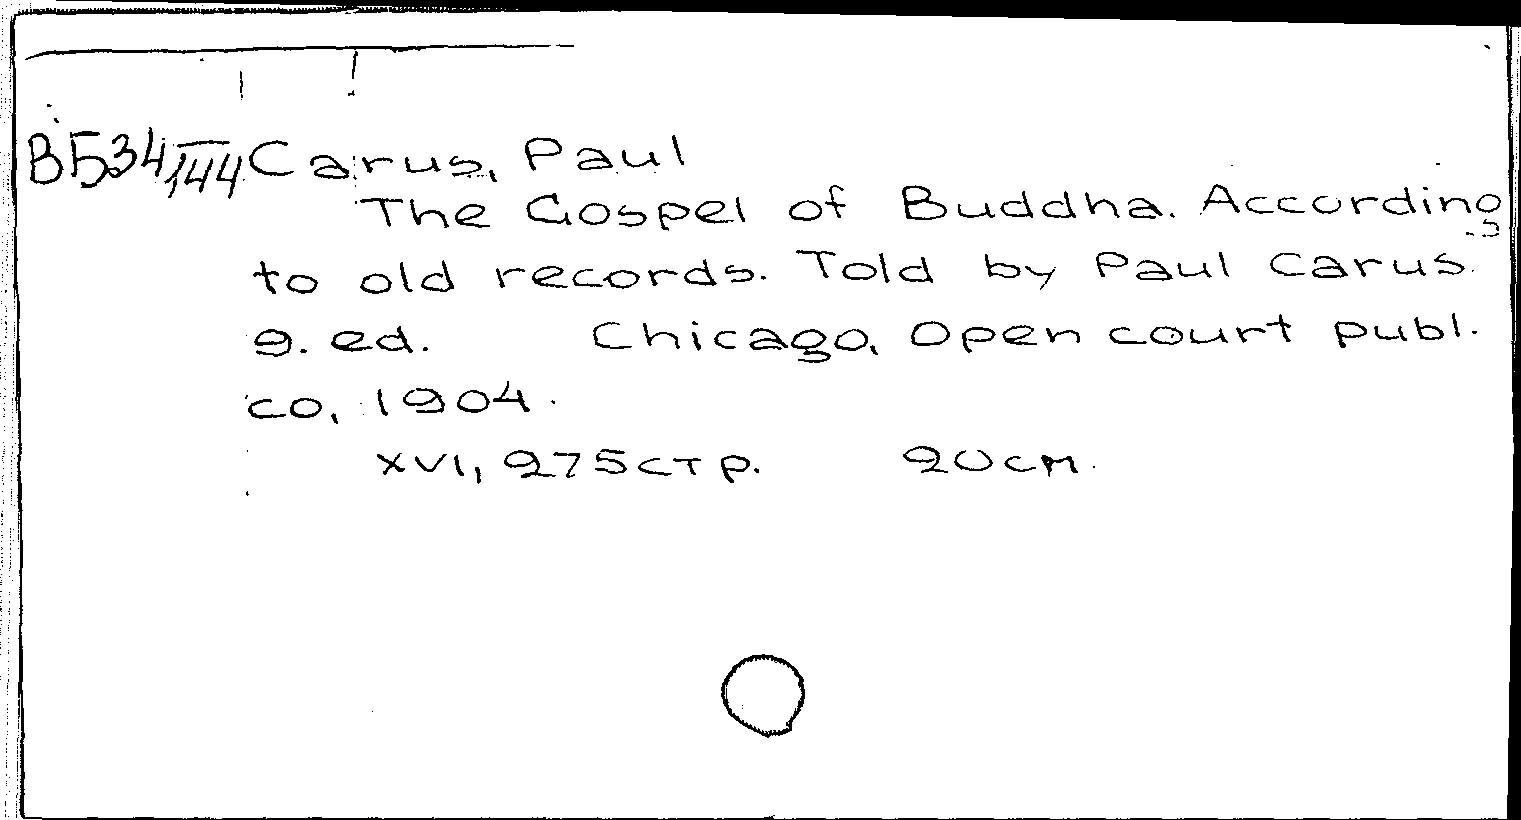 В534/144 Carus, Paul
The Gospel of Buddha. According
to old records. Told by Paul Carus.
9. ed. Chicago, Open court publ.
co, 1904.
XVI, 275 стр. 20 см.